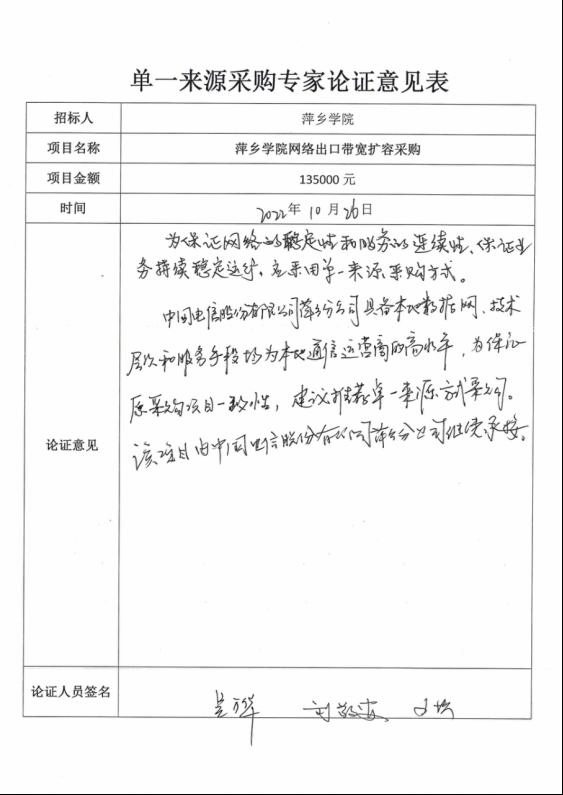 单一来源采购专家论证意见表
招标人 萍乡学院
项目名称 萍乡学院网络出口带宽扩容采购
项目金额 135000 元
时间 2022年 10 月 26日
论证意见
为保证网络的稳定性和服务的连续性、保证业
务持续稳定运行，应采用单一来源采购方式。
中国电信股份有限公司萍乡分公司具备本地数据网、技术
层次和服务手段均为本地通信运营商的高水平，为保证
原采购项目一致性，建议推荐单一来源方式采购。
该项目由中国电信股份有限公司萍乡分公司继续承接。
论证人员签名